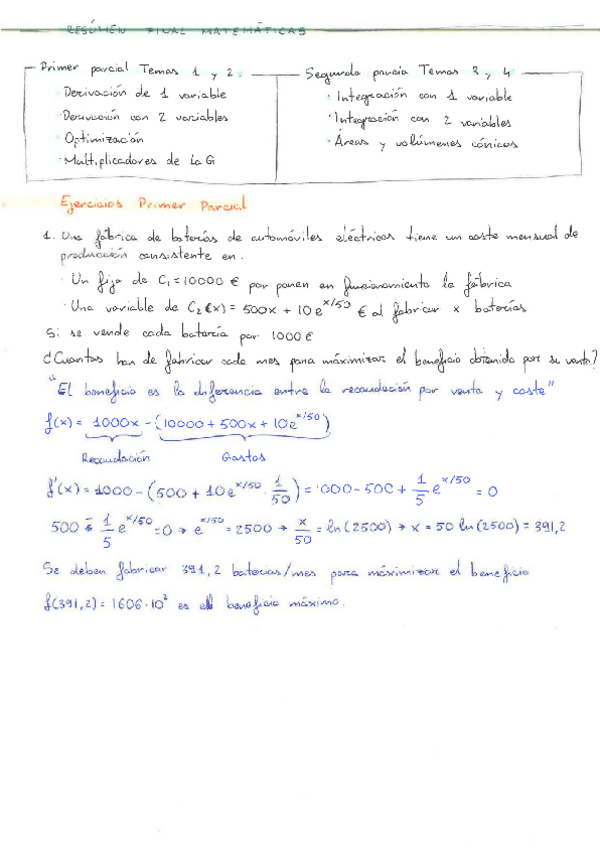 RESÚMEN FINAL MATEMÁTICAS
Primer parcial Temas 1 y 2:
· Derivación de 1 variable
· Derivación con 2 variables
· Optimización
· Multiplicadores de La G
Segundo parcia Temas 3 y 4
· Integración con 1 variable
· Integración con 2 variables
· Áreas y volúmenes cónicos
Ejercicios Primer Parcial
1. Una fábrica de baterías de automóviles eléctricos tiene un coste mensual de
producción consistente en.
· Un fijo de C₁=10000 € por poner en funcionamiento la fábrica
· Una variable de C₂(x)= 500x + 10e^x/50 € al fabricar x baterías
Si se vende cada batería por 1000 €
¿Cuantas han de fabricar cada mes para máximizar el beneficio obtenido por su venta?
"El beneficio es la diferencia entre la recaudación por venta y coste"
f(x) = 1000x - (10000 + 500x + 10e^x/50)
Recaudación Gastos
f'(x) = 1000 - (500 + 10e^x/50 · 1/50) = 1000 - 500 + 1/5 e^x/50 = 0
500 - 1/5 e^x/50 = 0 → e^x/50 = 2500 → x/50 = ln(2500) → x = 50 ln(2500) = 391,2
Se deben fabricar 391,2 baterías/mes para máximizar el beneficio
f(391,2) = 1606·10² es el beneficio máximo.